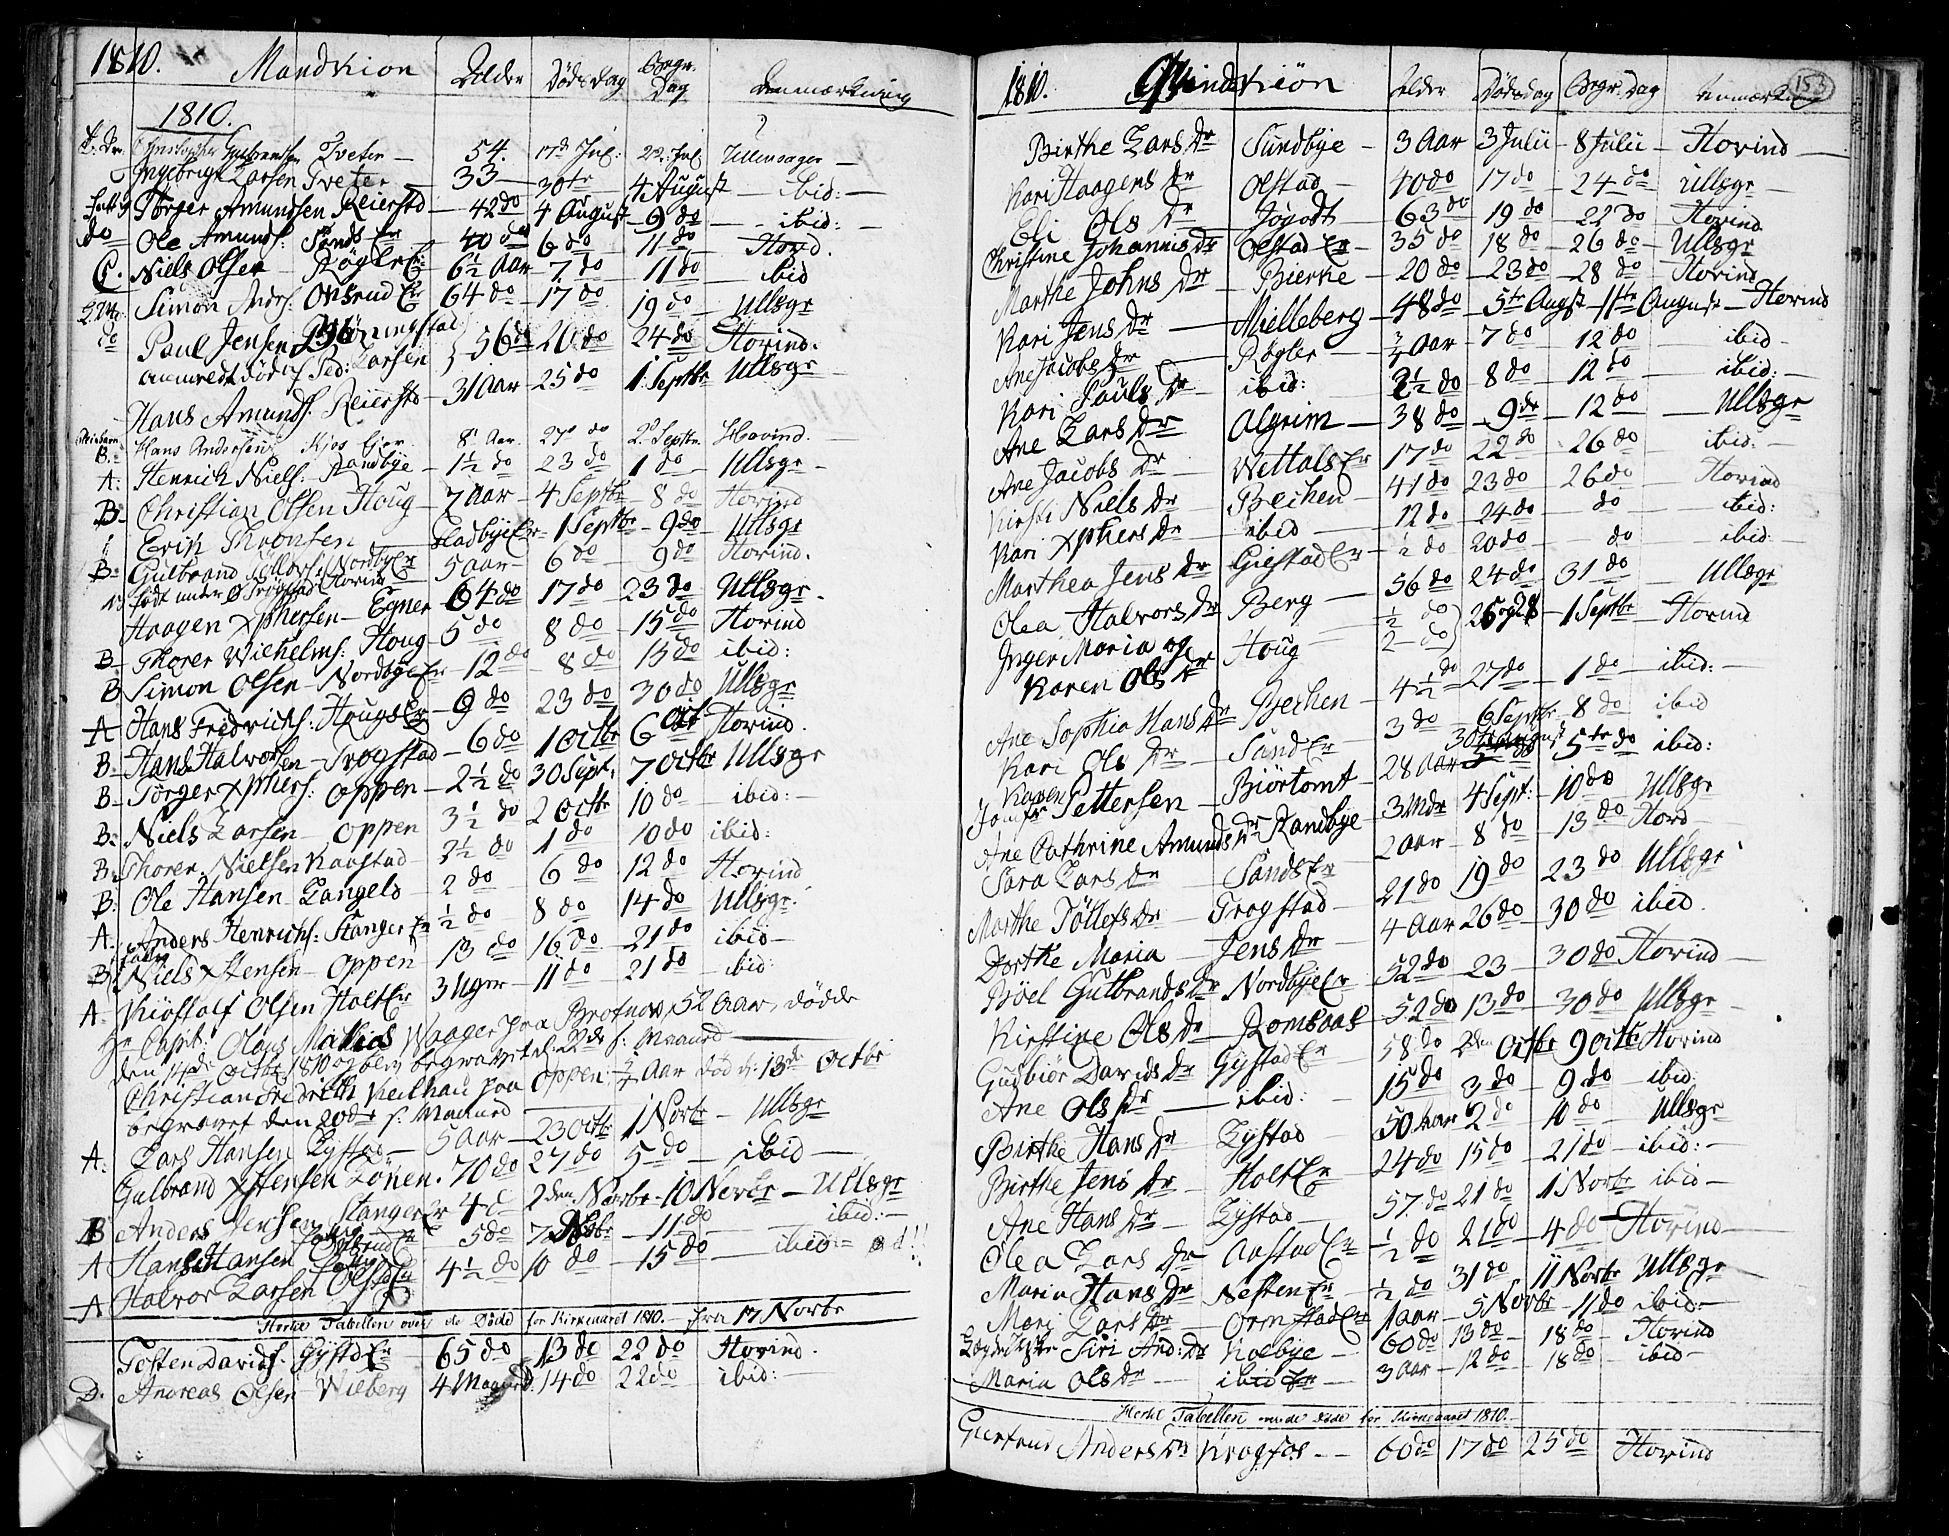 1810. Mandkiön Alder Dödsdag Begr. Dag Anmærkning
1810.
Gulbrandsen Tveter — 54. 17de Jul: 22. Jul Ullensager —
Ingebrigt Larsen Tveter 33 — 30te 4 August — ibid: —
Törger Amundsen Reierstd — 42 do 4 August — 9 do — ibid: —
do Ole Amunds: Sands Er 40 do 6 do 11 do Hovd.
C. Niels Olsen — Rögler Er 6½ Aar 7 do 11 do ibid
Simon Anders: Onsrud Er 64 do — 17 do 19 do Ullsgr
do Paul Jensen
56 do 20 do 24 do Hovind.
Larsen
Hans Amunds. Reierstd — 31 Aar 25 do 1 Septbr Ullsgr
B. Hans Andersen Kjos Ejer 8 Aar. 27 do 2 Septbr. Hovind. —
A. Henrich Niels: Randbye — 1½ do 23 do 1 do Ullsgr —
B. Christian Olsen Houg — 7 Aar — 4 Septbr — 8 do Hovind
Erik Thronsen Sladbye Er — 1 Septbr — 9 do — Ullsgr
B. Gulbrand Nordby Er 5 aar — 6 do 9 do Hovind.
født under Trögstad Hovind
Haagen Xphersen — Egner — 64 do 17 do 23 do Ullsgr.
B. Thorer Wilhelms: Houg 5 do 8 do 15 do Hovind
B Simon Olsen — Nordbye Er — 12 do — 8 do 15 do ibid:
A Hans Fredrichs: Hougs Er — 9 do 23 do 30 do Ullsgr
B. Hans Halvorsen — Trogstad — 6 do 1 Octbr 6 Oct Hovind.
B. Törger Xphers: Oppen — 2½ do 30 Sept. 7 Octbr Ullsgr
B. Niels Larsen — Oppen 3½ do 2 Octbr 10 do — ibid: —
B. Thorer. Nielsen Kaastad 2½ do 1 do 10 do ibid:
B. Ole Hansen Langels 2 do 6 do 12 do Hovind
A. Anders Henrichs: Stanger Er ½ do 8 do 14 do Ullsgr.
B. Niels Xstensen — Oppen 13 do 16 do 21 do ibid —
A. Kiöstolf Olsen Holt Er 3 Uger — 11 do 21 do ibid:
Hr Capt: Olaus Mathias Waager paa Brotnov, 52 Aar, dödde
den 14de Octbr 1810 og blev begravet d. 22de s: Maaned —
Christian Fredrich Keilhau paa Oppen ¾ Aar död d: 13de Octbr
begravet den 20de s: Maaned —
A. Lars Hansen Lystad — 5 aar — 23 Octbr 1 Novbr — Ullsgr
Gulbrand Xstensen Lönen. 70 do 27 do 5 do — ibid —
B Anders Jensen Stanger Er 4 2den Novbr — 10 Novbr — Ullsgr
A Hans Hansen 5 do 7 Nobr — 11 do ibid: —
A Halvor Larsen 4½ do 10 do — 15 do — ibid:
Hertil Tabellen over de Döde for Kirkeaaret 1810. — fra 17 Novbr
Tosten Davids: Gystd Er 65 do 13 do 22 do Hovind.
D. Andreas Olsen Wilberg 4 Maaned 14 do 22 do ibid: —
1810. Qvindekiön Alder Dödsdag Begr: Dag Anmærkning 153
Birthe Lars Dr Sundbye — 3 Aar 3 Julii — 8 Julii — Hovind —
Kari Haagens Dr Olstad — 40 do 17 do — 24 do Ullsgr —
Eli Ols Dr Jögodt — 63 do 19 do 22 do Hovind
Christine Johannis Dr Olstad Er — 35 do 18 do — 26 do — Ullsgr
Marthe Johns Dr Bierke — 20 do — 23 do — 28 do Hovind
Kari Jens Dr — Mielleberg — 48 do — 5te Augst — 11te August — Hovind
Ane Jacobs Dr — Rögler — ¾ Aar — 7 do 12 do ibid —
Kari Pauls Dr — ibid: 2½ do 8 do — 12 do ibid: —
Ane Lars Dr Algrim — 38 do — 9 do — 12 do — Ullsgr
Ane Jacobs Dr Wettals Er 17 do 22 do 26 do ibid: —
Kirsti Niels Dr Bechen — 41 do 23 do 26 do Hovind
Kari Xphers Dr ibid 12 do — 24 do — do ibid:
Marthea Jens Dr Giestad Er — ½ do 20 do do ibid: —
Olea Halvors Dr Berg — 56 do 24 do — 31 do — Ullsgr
Inger Maria og Houg ½ do 25 og 28 — 1 Septbr — Hovind
Karen Ols Dr 2 do
Ane Sophia Hans Dr Bechen — 4½ do 27 do 1 do ibid: —
Kari Ols Dr — Sund Er — 3 do — 6 Septbr — 8 do ibid
Jomfr Karen Pettersen — Biörtomt — 28 Aar 30 August 5te do ibid:
Ane Cathrine Amunds Dr Randbye — 3 Mdr 4 Sept: — 10 do Ullsgr
Sara Lars Dr Sands Er 2 aar 8 do — 13 do Hovd
Marthe Töllefs Dr — Trogstad — 21 do 19 do 23 do Ullsgr
Dorthe Maria — Jens Dr — 4 Aar 26 do 30 do ibid.
Böel Gulbrands Dr Nordbye Er — 52 do — 23 — 30 do Hovind —
Kirstine Ols Dr — Romsaas — 52 do 13 do — 30 do Ullsgr —
Gudbiör Davids Dr Gystad Er — 58 do 2den Octbr 9 Octbr Hovind
Ane Ols Dr — ibid: 15 do 3 do — 9 do ibid:
Birthe Hans Dr Lystad — 50 Aar 2 do 10 do — Ullsgr
Birthe Jens Dr — Holt Er 24 do 15 do — 21 do ibid: —
Ane Hans Dr — Lystad — 57 do 21 do 1 Novbr ibid —
Olea Lars Dr — Aastad Er — ½ do 21 do — 4 do — Hovind —
Maria Hans Dr — Nesten Er — ½ do 31 do 11 Novbr Ullsgr —
Mari Lars Dr — Ormstad Er — 1 aar — 5 Novbr — 11 do ibid: —
Siri And: Dr Kolbye — 60 do 13 do — 18 do — Hovind
Maria Ols Dr — ibid Er — 3 Aar — 12 do — 18 do ibid —
Hertil Tabellen over de döde for Kirkeaaret 1810. —
Giertrud Anders Dr Krogfos — — 60 do 17 do 25 do Hovind